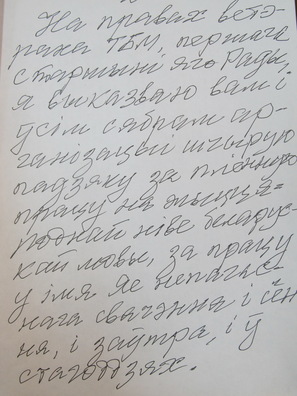 На правах ветэ-
рана ТБМ, першага
старшыні яго Рады,
я выказваю вам і
ўсім сябрам ар-
ганізацыі шчырую
падзяку за плённую
працу на жыцця-
роднай ніве беларус-
кай мовы, за працу
у імя яе непагас-
нага свячэння і сён-
ня, і заўтра, і ў
стагоддзях.